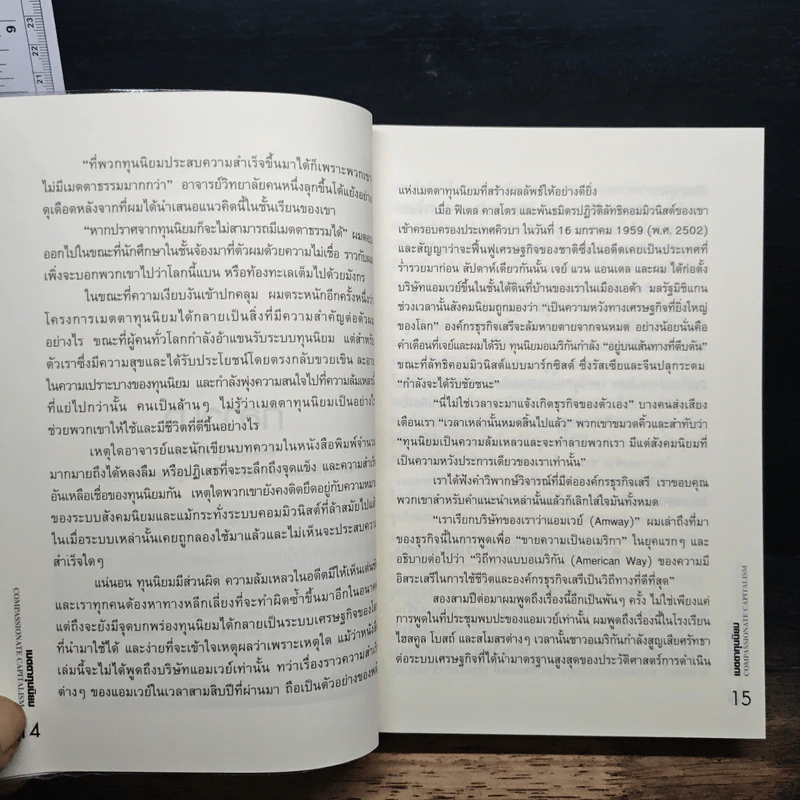 9
23
22
21
“ที่พวกทุนนิยมประสบความสำเร็จขึ้นมาได้ก็เพราะพวกเขา
ไม่มีเมตตาธรรมมากกว่า” อาจารย์วิทยาลัยคนหนึ่งลุกขึ้นโต้แย้งอย่าง
ดุเดือดหลังจากที่ผมได้นำเสนอแนวคิดนี้ในชั้นเรียนของเขา
“หากปราศจากทุนนิยมก็จะไม่สามารถมีเมตตาธรรมได้” ผมตอบ
ออกไปในขณะที่นักศึกษาในชั้นจ้องมาที่ตัวผมด้วยความไม่เชื่อ ราวกับผม
เพิ่งจะบอกพวกเขาไปว่าโลกนี้แบน หรือท้องทะเลเต็มไปด้วยมังกร
ในขณะที่ความเงียบงันเข้าปกคลุม ผมตระหนักอีกครั้งหนึ่งว่า
โครงการเมตตาทุนนิยมได้กลายเป็นสิ่งที่มีความสำคัญต่อตัวผม
อย่างไร ขณะที่ผู้คนทั่วโลกกำลังอ้าแขนรับระบบทุนนิยม แต่สำหรับ
ตัวเราซึ่งมีความสุขและได้รับประโยชน์โดยตรงกลับขวยเขิน ละอาย
ในความเปราะบางของทุนนิยม และกำลังพุ่งความสนใจไปที่ความล้มเหลว
ที่แย่ไปกว่านั้น คนเป็นล้านๆ ไม่รู้ว่าเมตตาทุนนิยมเป็นอย่างไร
ช่วยพวกเขาให้ใช้และมีชีวิตที่ดีขึ้นอย่างไร
เหตุใดอาจารย์และนักเขียนบทความในหนังสือพิมพ์จำนวน
มากมายถึงได้หลงลืม หรือปฏิเสธที่จะระลึกถึงจุดแข็ง และความสำเร็จ
อันเหลือเชื่อของทุนนิยมกัน เหตุใดพวกเขายังคงติดยึดอยู่กับความหมาย
ของระบบสังคมนิยมและแม้กระทั่งระบบคอมมิวนิสต์ที่ล้าสมัยไปแล้ว
ในเมื่อระบบเหล่านั้นเคยถูกลองใช้มาแล้วและไม่เห็นจะประสบความ
สำเร็จใดๆ
แน่นอน ทุนนิยมมีส่วนผิด ความล้มเหลวในอดีตมีให้เห็นเด่นชัด
และเราทุกคนต้องหาทางหลีกเลี่ยงที่จะทำผิดซ้ำขึ้นมาอีกในอนาคต
แต่ถึงจะยังมีจุดบกพร่องทุนนิยมได้กลายเป็นระบบเศรษฐกิจของโลก
ที่นำมาใช้ได้ และง่ายที่จะเข้าใจเหตุผลว่าเพราะเหตุใด แม้ว่าหนังสือ
เล่มนี้จะไม่ได้พูดถึงบริษัทแอมเวย์เท่านั้น ทว่าเรื่องราวความสำเร็จ
ต่างๆ ของแอมเวย์ในเวลาสามสิบปีที่ผ่านมา ถือเป็นตัวอย่างของพลัง
เมตตาทุนนิยม
COMPASSIONATE CAPITALISM
14
แห่งเมตตาทุนนิยมที่สร้างผลลัพธ์ให้อย่างดียิ่ง
เมื่อ ฟิเดล คาสโตร และพันธมิตรปฏิวัติลัทธิคอมมิวนิสต์ของเขา
เข้าครอบครองประเทศคิวบา ในวันที่ 16 มกราคม 1959 (พ.ศ. 2502)
และสัญญาว่าจะฟื้นฟูเศรษฐกิจของชาติซึ่งในอดีตเคยเป็นประเทศที่
ร่ำรวยมาก่อน สัปดาห์เดียวกันนั้น เจย์ แวน แอนเดล และผม ได้ก่อตั้ง
บริษัทแอมเวย์ขึ้นในชั้นใต้ดินที่บ้านของเราในเมืองเอด้า มลรัฐมิชิแกน
ช่วงเวลานั้นสังคมนิยมถูกมองว่า “เป็นความหวังทางเศรษฐกิจที่ยิ่งใหญ่
ของโลก” องค์กรธุรกิจเสรีจะล้มหายตายจากจนหมด อย่างน้อยนั่นคือ
คำเตือนที่เจย์และผมได้รับ ทุนนิยมอเมริกันกำลัง “อยู่บนเส้นทางที่ตีบตัน”
ขณะที่ลัทธิคอมมิวนิสต์แบบมาร์กซิสต์ ซึ่งรัสเซียและจีนปลุกระดม
“กำลังจะได้รับชัยชนะ”
“นี่ไม่ใช่เวลาจะมาแจ้งเกิดธุรกิจของตัวเอง” บางคนส่งเสียง
เตือนเรา “เวลาเหล่านั้นหมดสิ้นไปแล้ว” พวกเขาขมวดคิ้วและสำทับว่า
“ทุนนิยมเป็นความล้มเหลวและจะทำลายพวกเรา มีแต่สังคมนิยมที่
เป็นความหวังประการเดียวของเราเท่านั้น”
เราได้ฟังคำวิพากษ์วิจารณ์ที่มีต่อองค์กรธุรกิจเสรี เราขอบคุณ
พวกเขาสำหรับคำแนะนำเหล่านั้นแล้วก็เลิกใส่ใจมันทั้งหมด
“เราเรียกบริษัทของเราว่าแอมเวย์ (Amway)” ผมเล่าถึงที่มา
ของธุรกิจนี้ในการพูดเพื่อ “ขายความเป็นอเมริกา” ในยุคแรกๆ และ
อธิบายต่อไปว่า “วิถีทางแบบอเมริกัน (American Way) ของความมี
อิสระเสรีในการใช้ชีวิตและองค์กรธุรกิจเสรีเป็นวิถีทางที่ดีที่สุด”
สองสามปีต่อมาผมพูดถึงเรื่องนี้อีกเป็นพันๆ ครั้ง ไม่ใช่เพียงแค่
การพูดในที่ประชุมพบปะของแอมเวย์เท่านั้น ผมพูดถึงเรื่องนี้ในโรงเรียน
ไฮสคูล โบสถ์ และสโมสรต่างๆ เวลานั้นชาวอเมริกันกำลังสูญเสียศรัทธา
ต่อระบบเศรษฐกิจที่ได้นำมาตรฐานสูงสุดของประวัติศาสตร์การดำเนิน
เมตตาทุนนิยม
COMPASSIONATE CAPITALISM
15